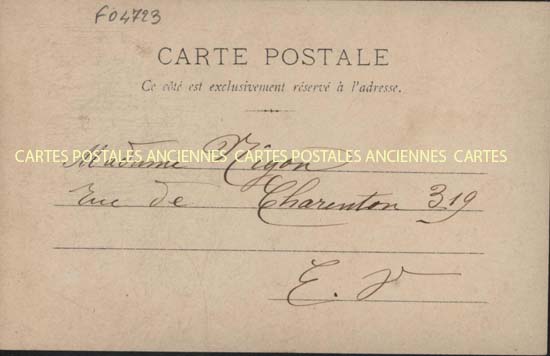 F04723
CARTE POSTALE
Ce côté est exclusivement réservé à l'adresse.
CARTES POSTALES ANCIENNES CARTES POSTALES ANCIENNES CARTES
Madame Nigon
Rue de Charenton 319
E. V